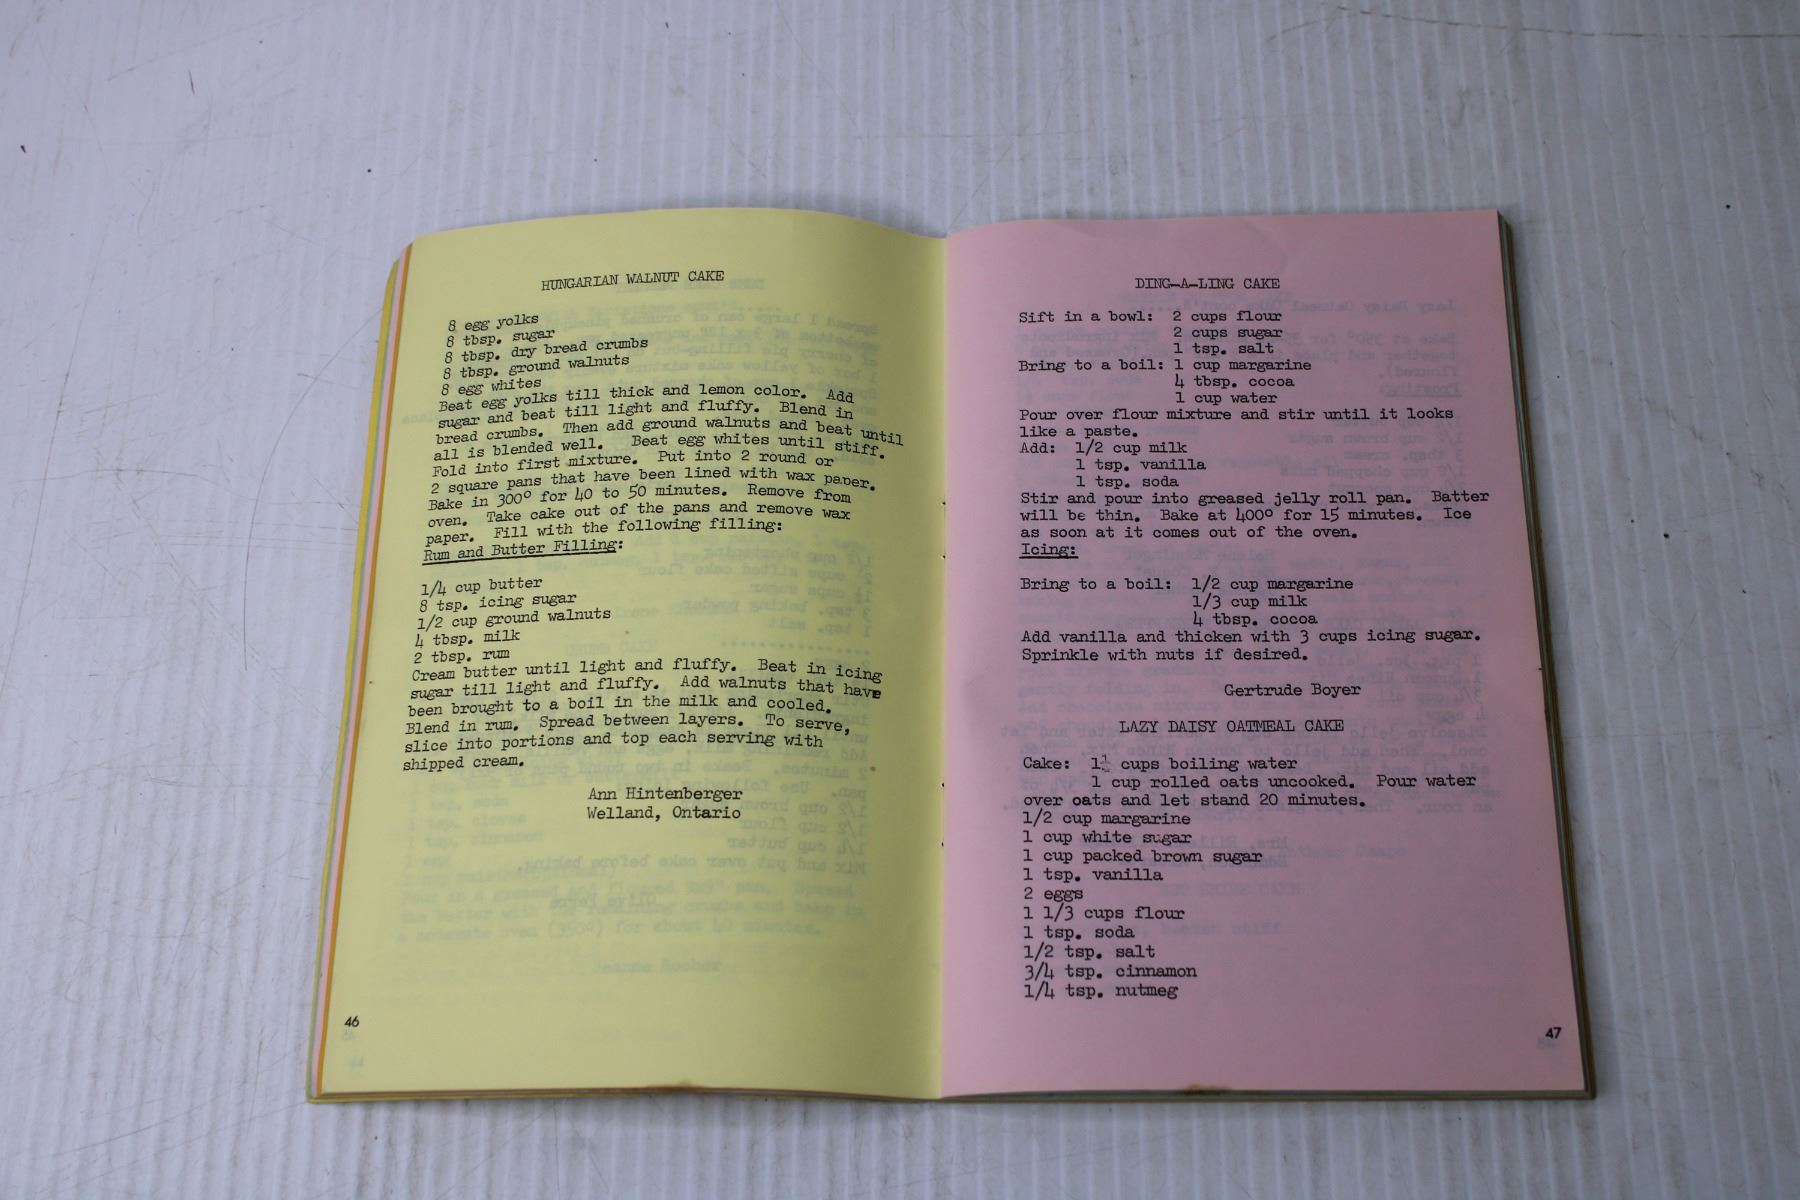 HUNGARIAN WALNUT CAKE
8 egg yolks
8 tbsp. sugar
8 tbsp. dry bread crumbs
8 tbsp. ground walnuts
8 egg whites
Beat egg yolks till thick and lemon color. Add
sugar and beat till light and fluffy. Blend in
bread crumbs. Then add ground walnuts and beat until
all is blended well. Beat egg whites until stiff.
Fold into first mixture. Put into 2 round or
2 square pans that have been lined with wax paper.
Bake in 300° for 40 to 50 minutes. Remove from
oven. Take cake out of the pans and remove wax
paper. Fill with the following filling:
Rum and Butter Filling:
1/4 cup butter
8 tsp. icing sugar
1/2 cup ground walnuts
4 tbsp. milk
2 tbsp. rum
Cream butter until light and fluffy. Beat in icing
sugar till light and fluffy. Add walnuts that have
been brought to a boil in the milk and cooled.
Blend in rum. Spread between layers. To serve,
slice into portions and top each serving with
shipped cream.
Ann Hintenberger
Welland, Ontario
46
DING-A-LING CAKE
Sift in a bowl: 2 cups flour
2 cups sugar
1 tsp. salt
Bring to a boil: 1 cup margarine
4 tbsp. cocoa
1 cup water
Pour over flour mixture and stir until it looks
like a paste.
Add: 1/2 cup milk
1 tsp. vanilla
1 tsp. soda
Stir and pour into greased jelly roll pan. Batter
will be thin. Bake at 400° for 15 minutes. Ice
as soon at it comes out of the oven.
Icing:
Bring to a boil: 1/2 cup margarine
1/3 cup milk
4 tbsp. cocoa
Add vanilla and thicken with 3 cups icing sugar.
Sprinkle with nuts if desired.
Gertrude Boyer
LAZY DAISY OATMEAL CAKE
Cake: 1¼ cups boiling water
1 cup rolled oats uncooked. Pour water
over oats and let stand 20 minutes.
1/2 cup margarine
1 cup white sugar
1 cup packed brown sugar
1 tsp. vanilla
2 eggs
1 1/3 cups flour
1 tsp. soda
1/2 tsp. salt
3/4 tsp. cinnamon
1/4 tsp. nutmeg
47